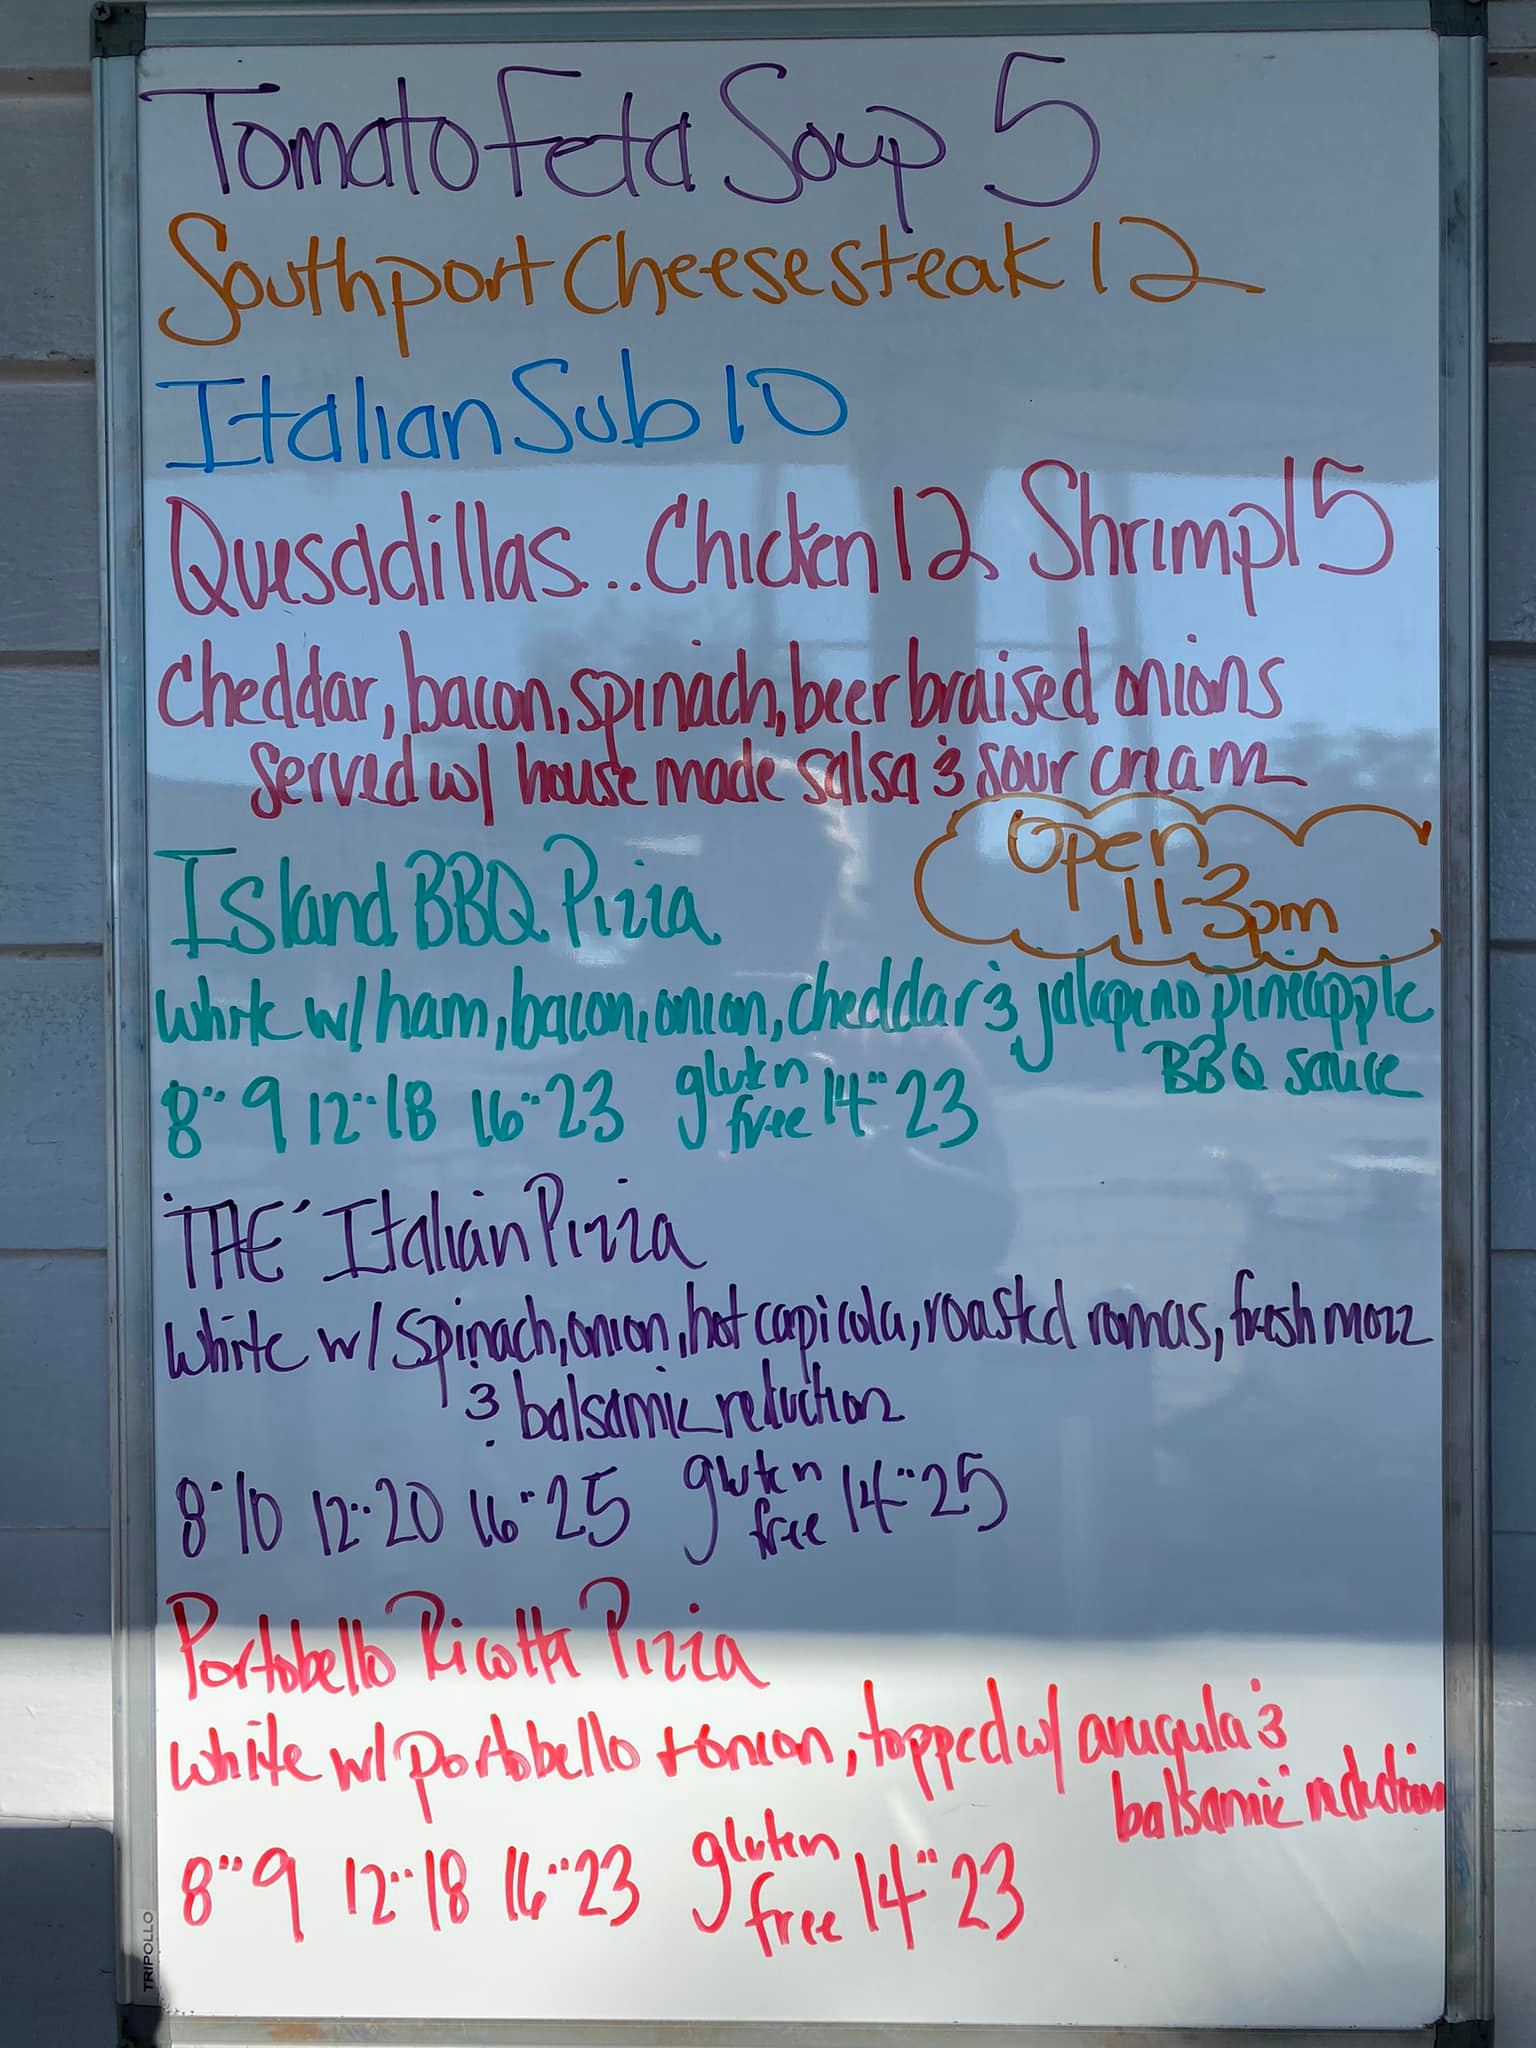 Tomato Feta Soup 5
Southport Cheesesteak 12
Italian Sub 10
Quesadillas... Chicken 12 Shrimp 15
Cheddar, bacon, spinach, beer braised onions
Served w/ house made salsa & sour cream
Open
11-3pm
Island BBQ Pizza
White w/ ham, bacon, onion, cheddar & jalapeno pineapple
BBQ sauce
8" 9 12" 18 16" 23 gluten free 14" 23
"THE" Italian Pizza
White w/ spinach, onion, hot capicola, roasted romas, fresh mozz
& balsamic reduction
8" 10 12" 20 16" 25 gluten free 14" 25
Portobello Ricotta Pizza
White w/ portobello + onion, topped w/ arugula &
balsamic reduction
8" 9 12" 18 16" 23 gluten free 14" 23
TRIPOLLO